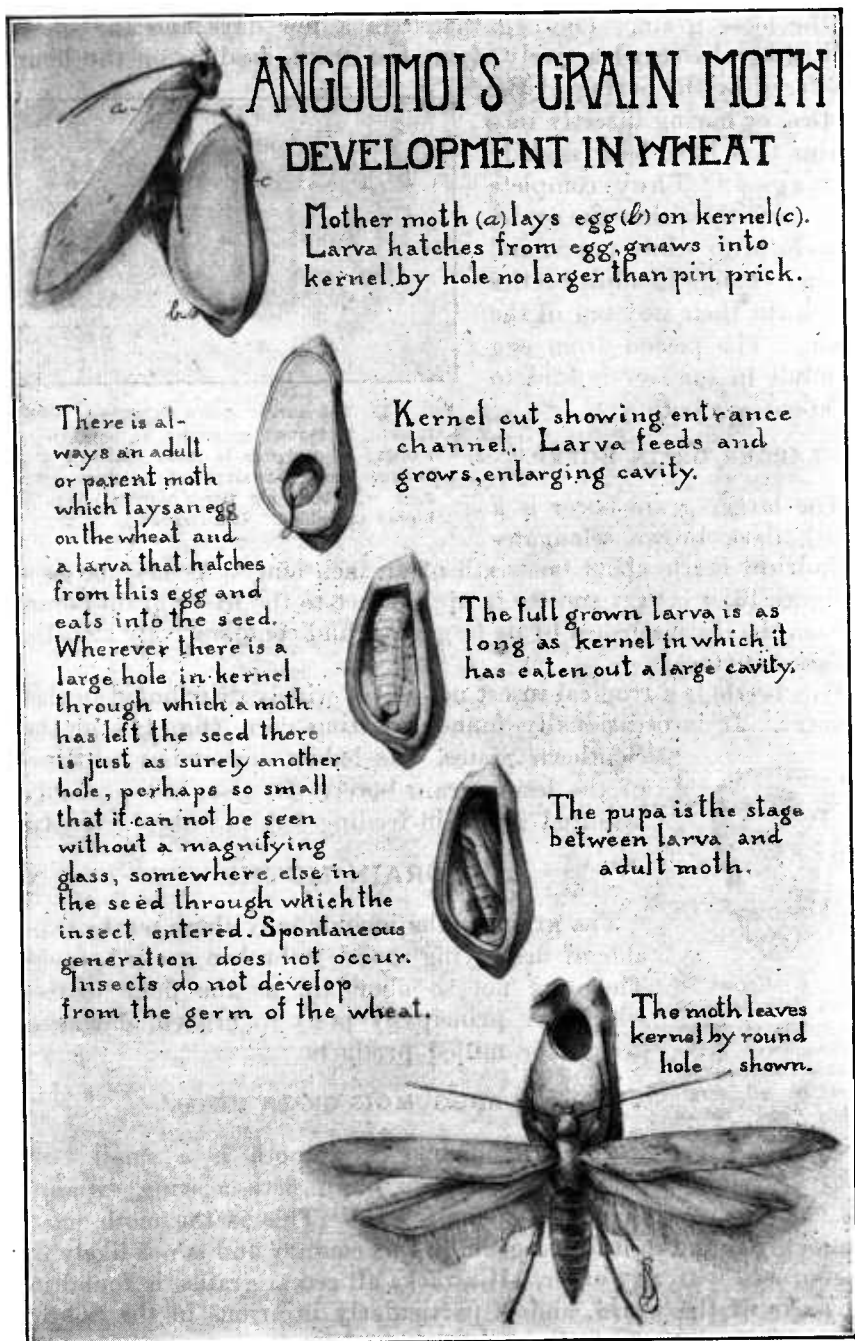 ANGOUMOIS GRAIN MOTH
DEVELOPMENT IN WHEAT
Mother moth (a) lays egg (b) on kernel (c).
Larva hatches from egg, gnaws into
kernel by hole no larger than pin prick.
a
c
b
Kernel cut showing entrance
channel. Larva feeds and
grows, enlarging cavity.
There is al-
ways an adult
or parent moth
which lays an egg
on the wheat and
a larva that hatches
from this egg and
eats into the seed.
Wherever there is a
large hole in kernel
through which a moth
has left the seed there
is just as surely another
hole, perhaps so small
that it can not be seen
without a magnifying
glass, somewhere else in
the seed through which the
insect entered. Spontaneous
generation does not occur.
Insects do not develop
from the germ of the wheat.
The full grown larva is as
long as kernel in which it
has eaten out a large cavity.
The pupa is the stage
between larva and
adult moth.
The moth leaves
kernel by round
hole shown.